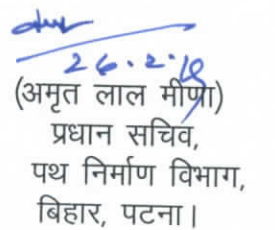 26.2.18
(अमृत लाल मीणा)
प्रधान सचिव,
पथ निर्माण विभाग,
बिहार, पटना।